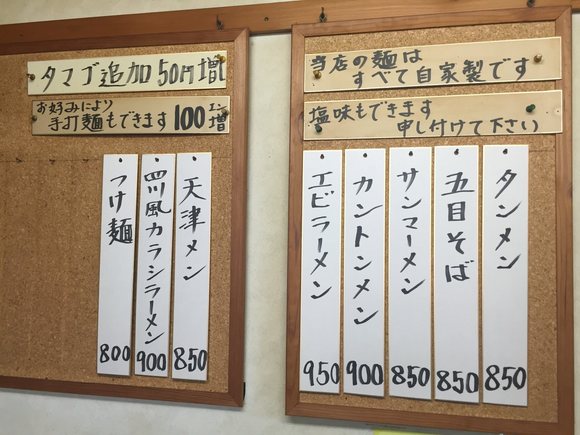 当店の麺は
すべて自家製です
塩味もできます
申し付けて下さい
タンメン
850
五目そば
850
サンマーメン
850
カントンメン
900
エビラーメン
950
タマゴ追加50円増
お好みにより
手打麺もできます100エン増
天津メン
850
四川風カラシラーメン
900
つけ麺
800